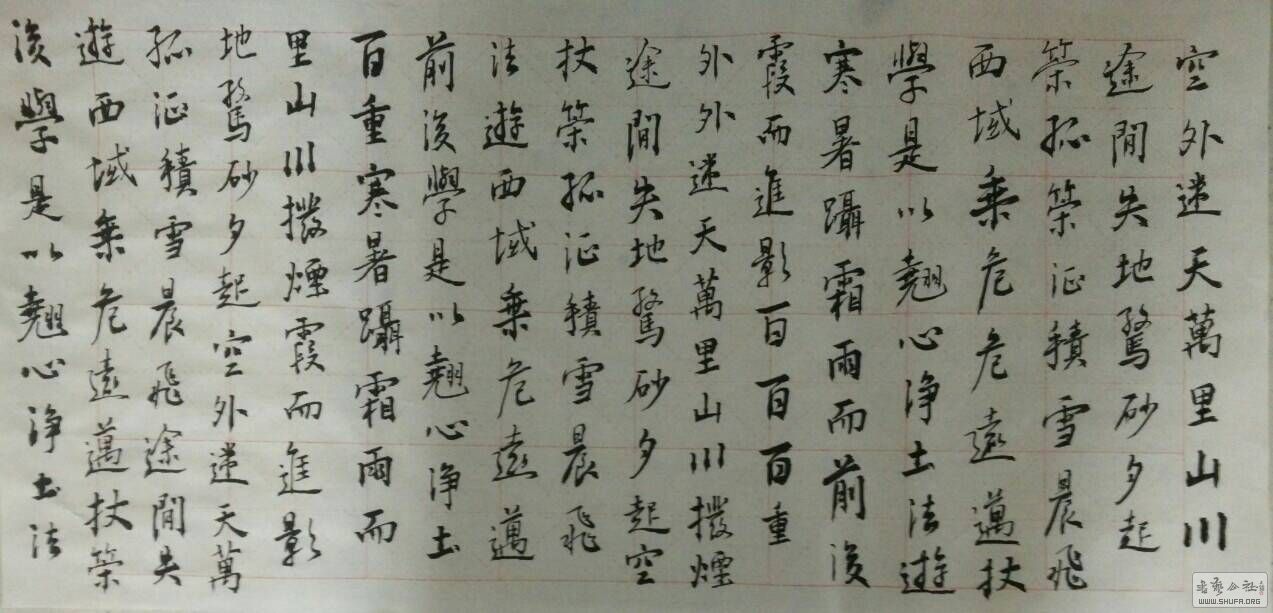 空外迷天萬里山川
途間失地驚砂夕起
策孤策征積雪晨飛
西域乗危危遠邁杖
學是以翹心浄土法遊
寒暑躡霜雨而前後
霞而進影百百百重
外外迷天萬里山川撥煙
途間失地驚砂夕起空
杖策孤征積雪晨飛
法遊西域乗危遠邁
前後學是以翹心浄土
百重寒暑躡霜雨而
里山川撥煙霞而進影
地驚砂夕起空外迷天萬
孤征積雪晨飛途間失
遊西域乗危遠邁杖策
後學是以翹心浄土法
書藝公社
WWW.SHUFA.ORG